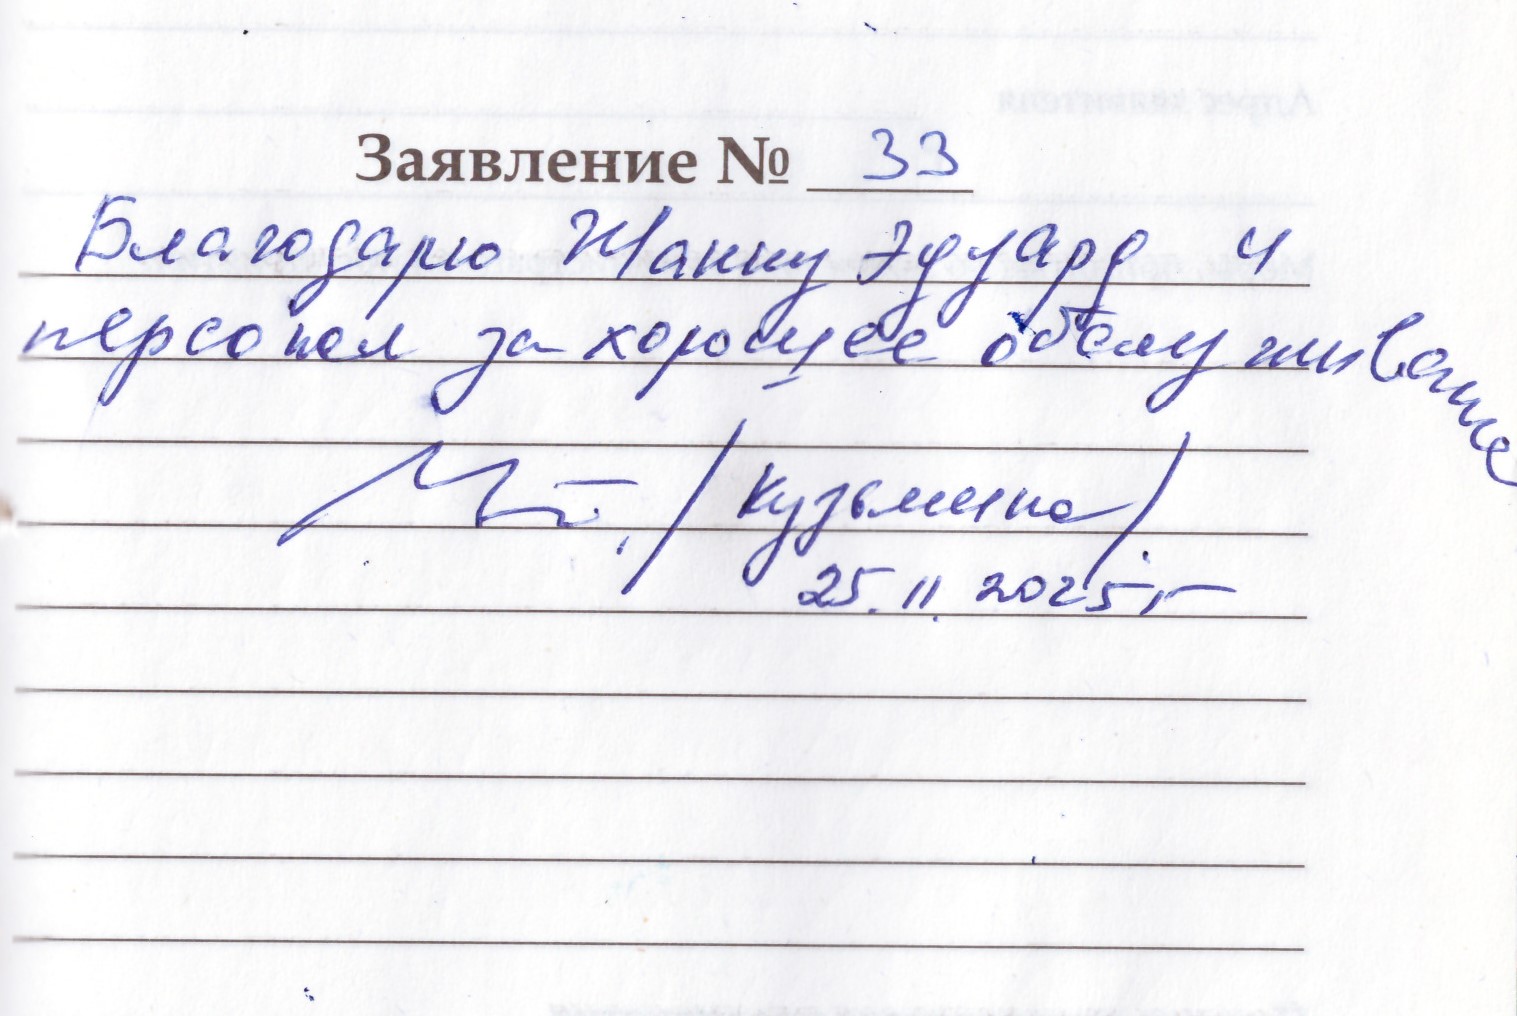 Заявление № 33
Благодарю Жанну Эдуард и
персонал за хорошее обслуживание
/Кузьмина/
25.11.2025г